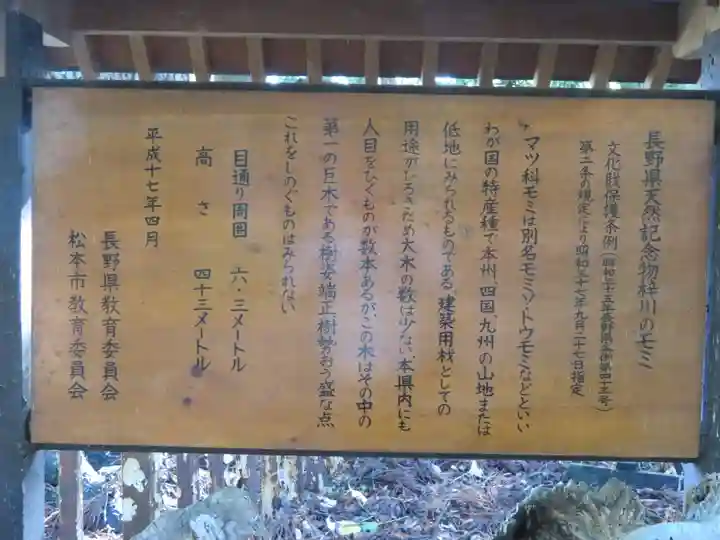 長野県天然記念物梓川のモミ
文化財保護条例(昭和三十五年長野県条例第四十三号)
第二条の規定により昭和三十七年九月二十七日指定
マツ科モミは別名モミソ、トウモミなどといい
わが国の特産種で本州、四国、九州の山地または
低地にみられるものである。建築用材としての
用途がひろきため大木の数は少ない。本県内にも
人目をひくものが数本あるが、この木はその中の
第一の巨木である。樹姿端正、樹勢おう盛な点
これをしのぐものはみられない
目通り周囲 六・三メートル
高さ 四十三メートル
平成十七年四月
長野県教育委員会
松本市教育委員会